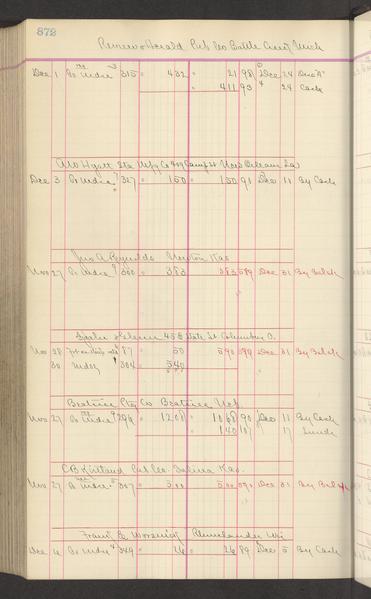 872
Review & Herald Pub Co Battle Creek Mich
Dec 1 To Mdse 315 432 21 98 Dec 24
411 93 24 Cash
Mfg Co Camp St New Orleans La
Dec 3 To Mdse 327 150 150 91 Dec 11 By Cash
Jno A Reynolds Newton Kas
Nov 27 To Mdse 300 383 383 589 Dec 31 By Balce
State St Columbus O.
Nov 28 87 50 590 590 Dec 31 By Balce
30 Mdse 304 540
Beatrice Ptg Co Beatrice Neb
Nov 27 To Mdse 299 1208 1068 90 Dec 11 By Cash
140 107 17 Sunds
C B Kirtland Pub Co. Salina Kas.
Nov 27 To Mdse 307 500 500 590 Dec 31 By Balce
Rhinelander Wis
Dec 4 To Mdse 349 26 26 89 Dec 5 By Cash